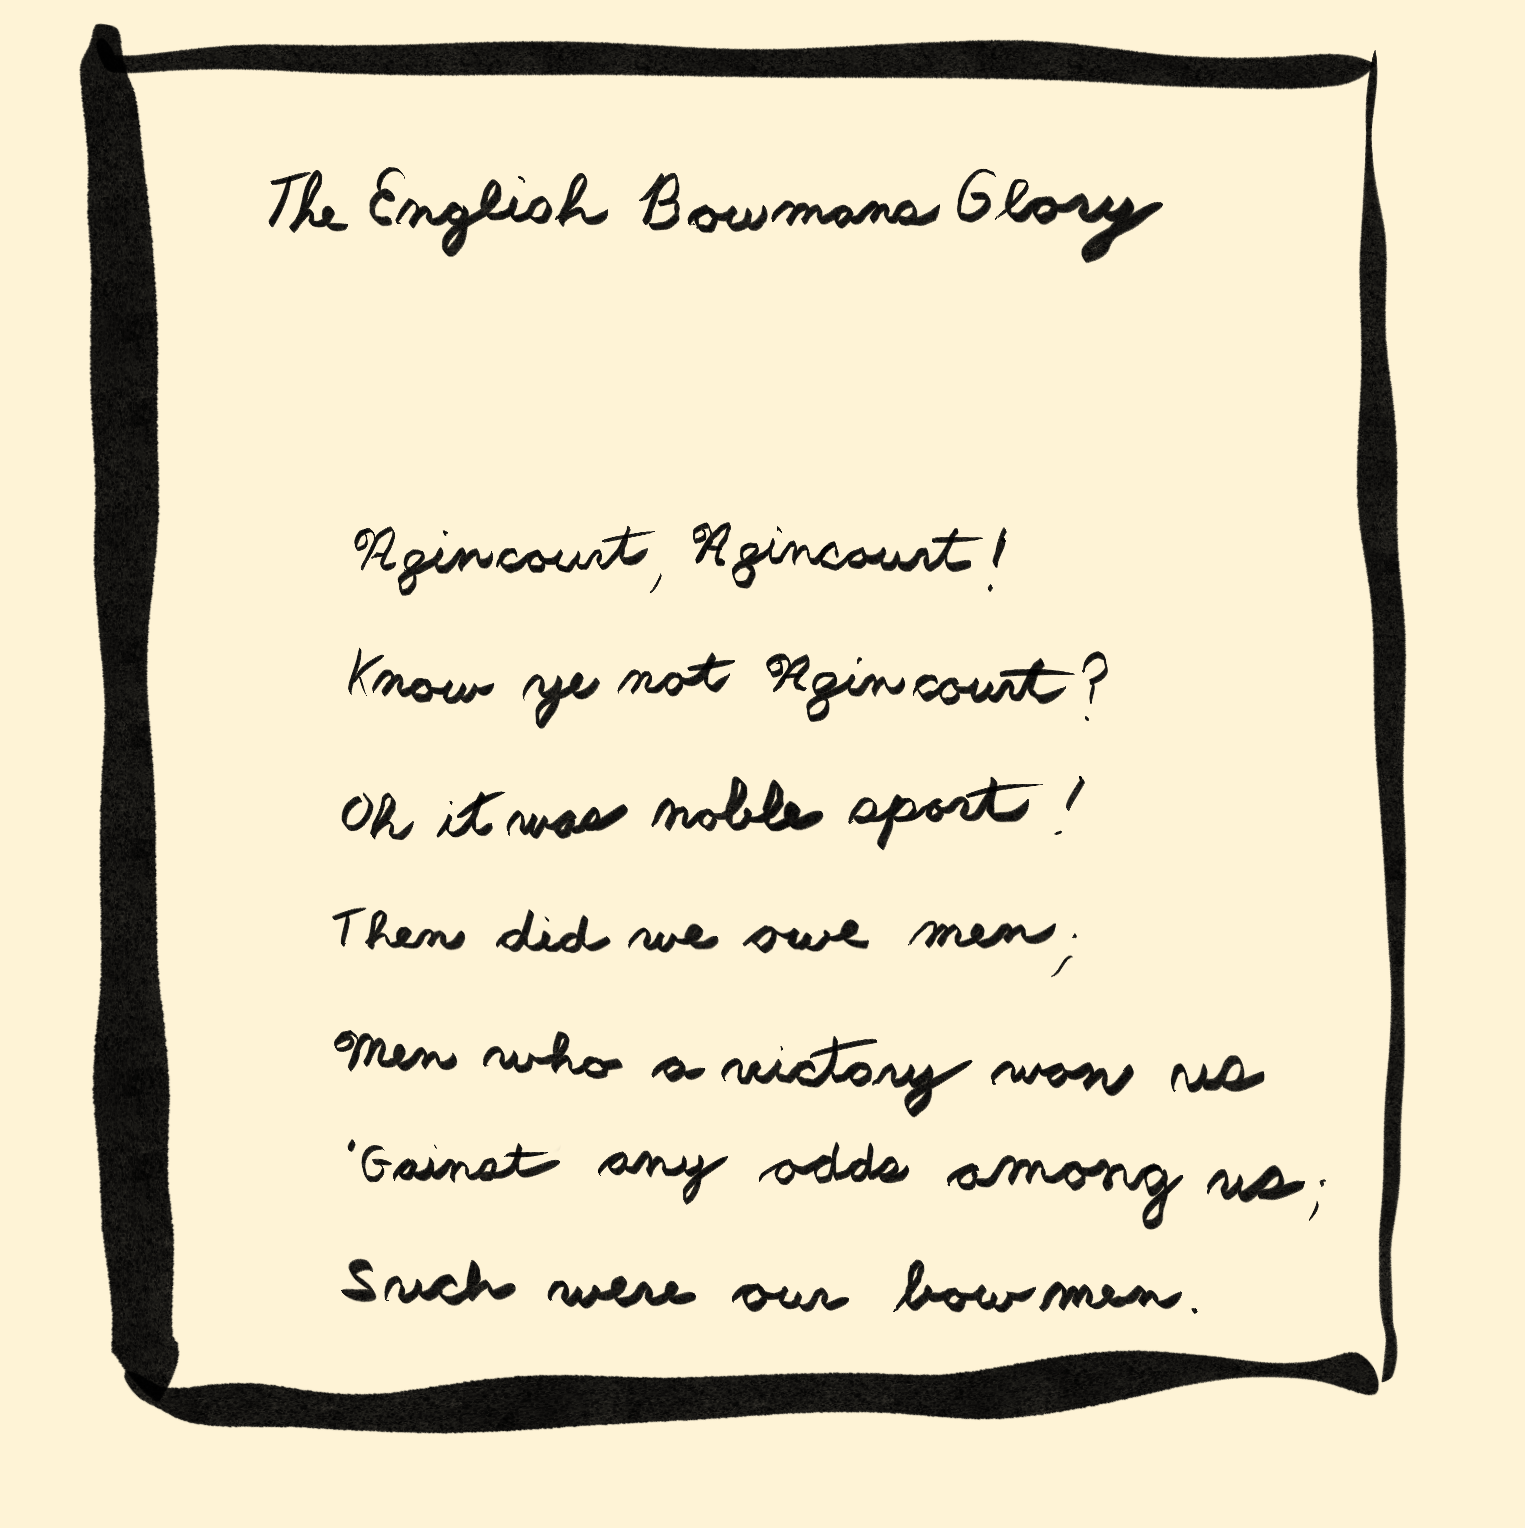 The English Bowmans Glory
Agincourt, Agincourt!
Know ye not Agincourt?
Oh it was noble sport!
Then did we owe men;
Men who a victory won us
'Gainst any odds among us;
Such were our bowmen.